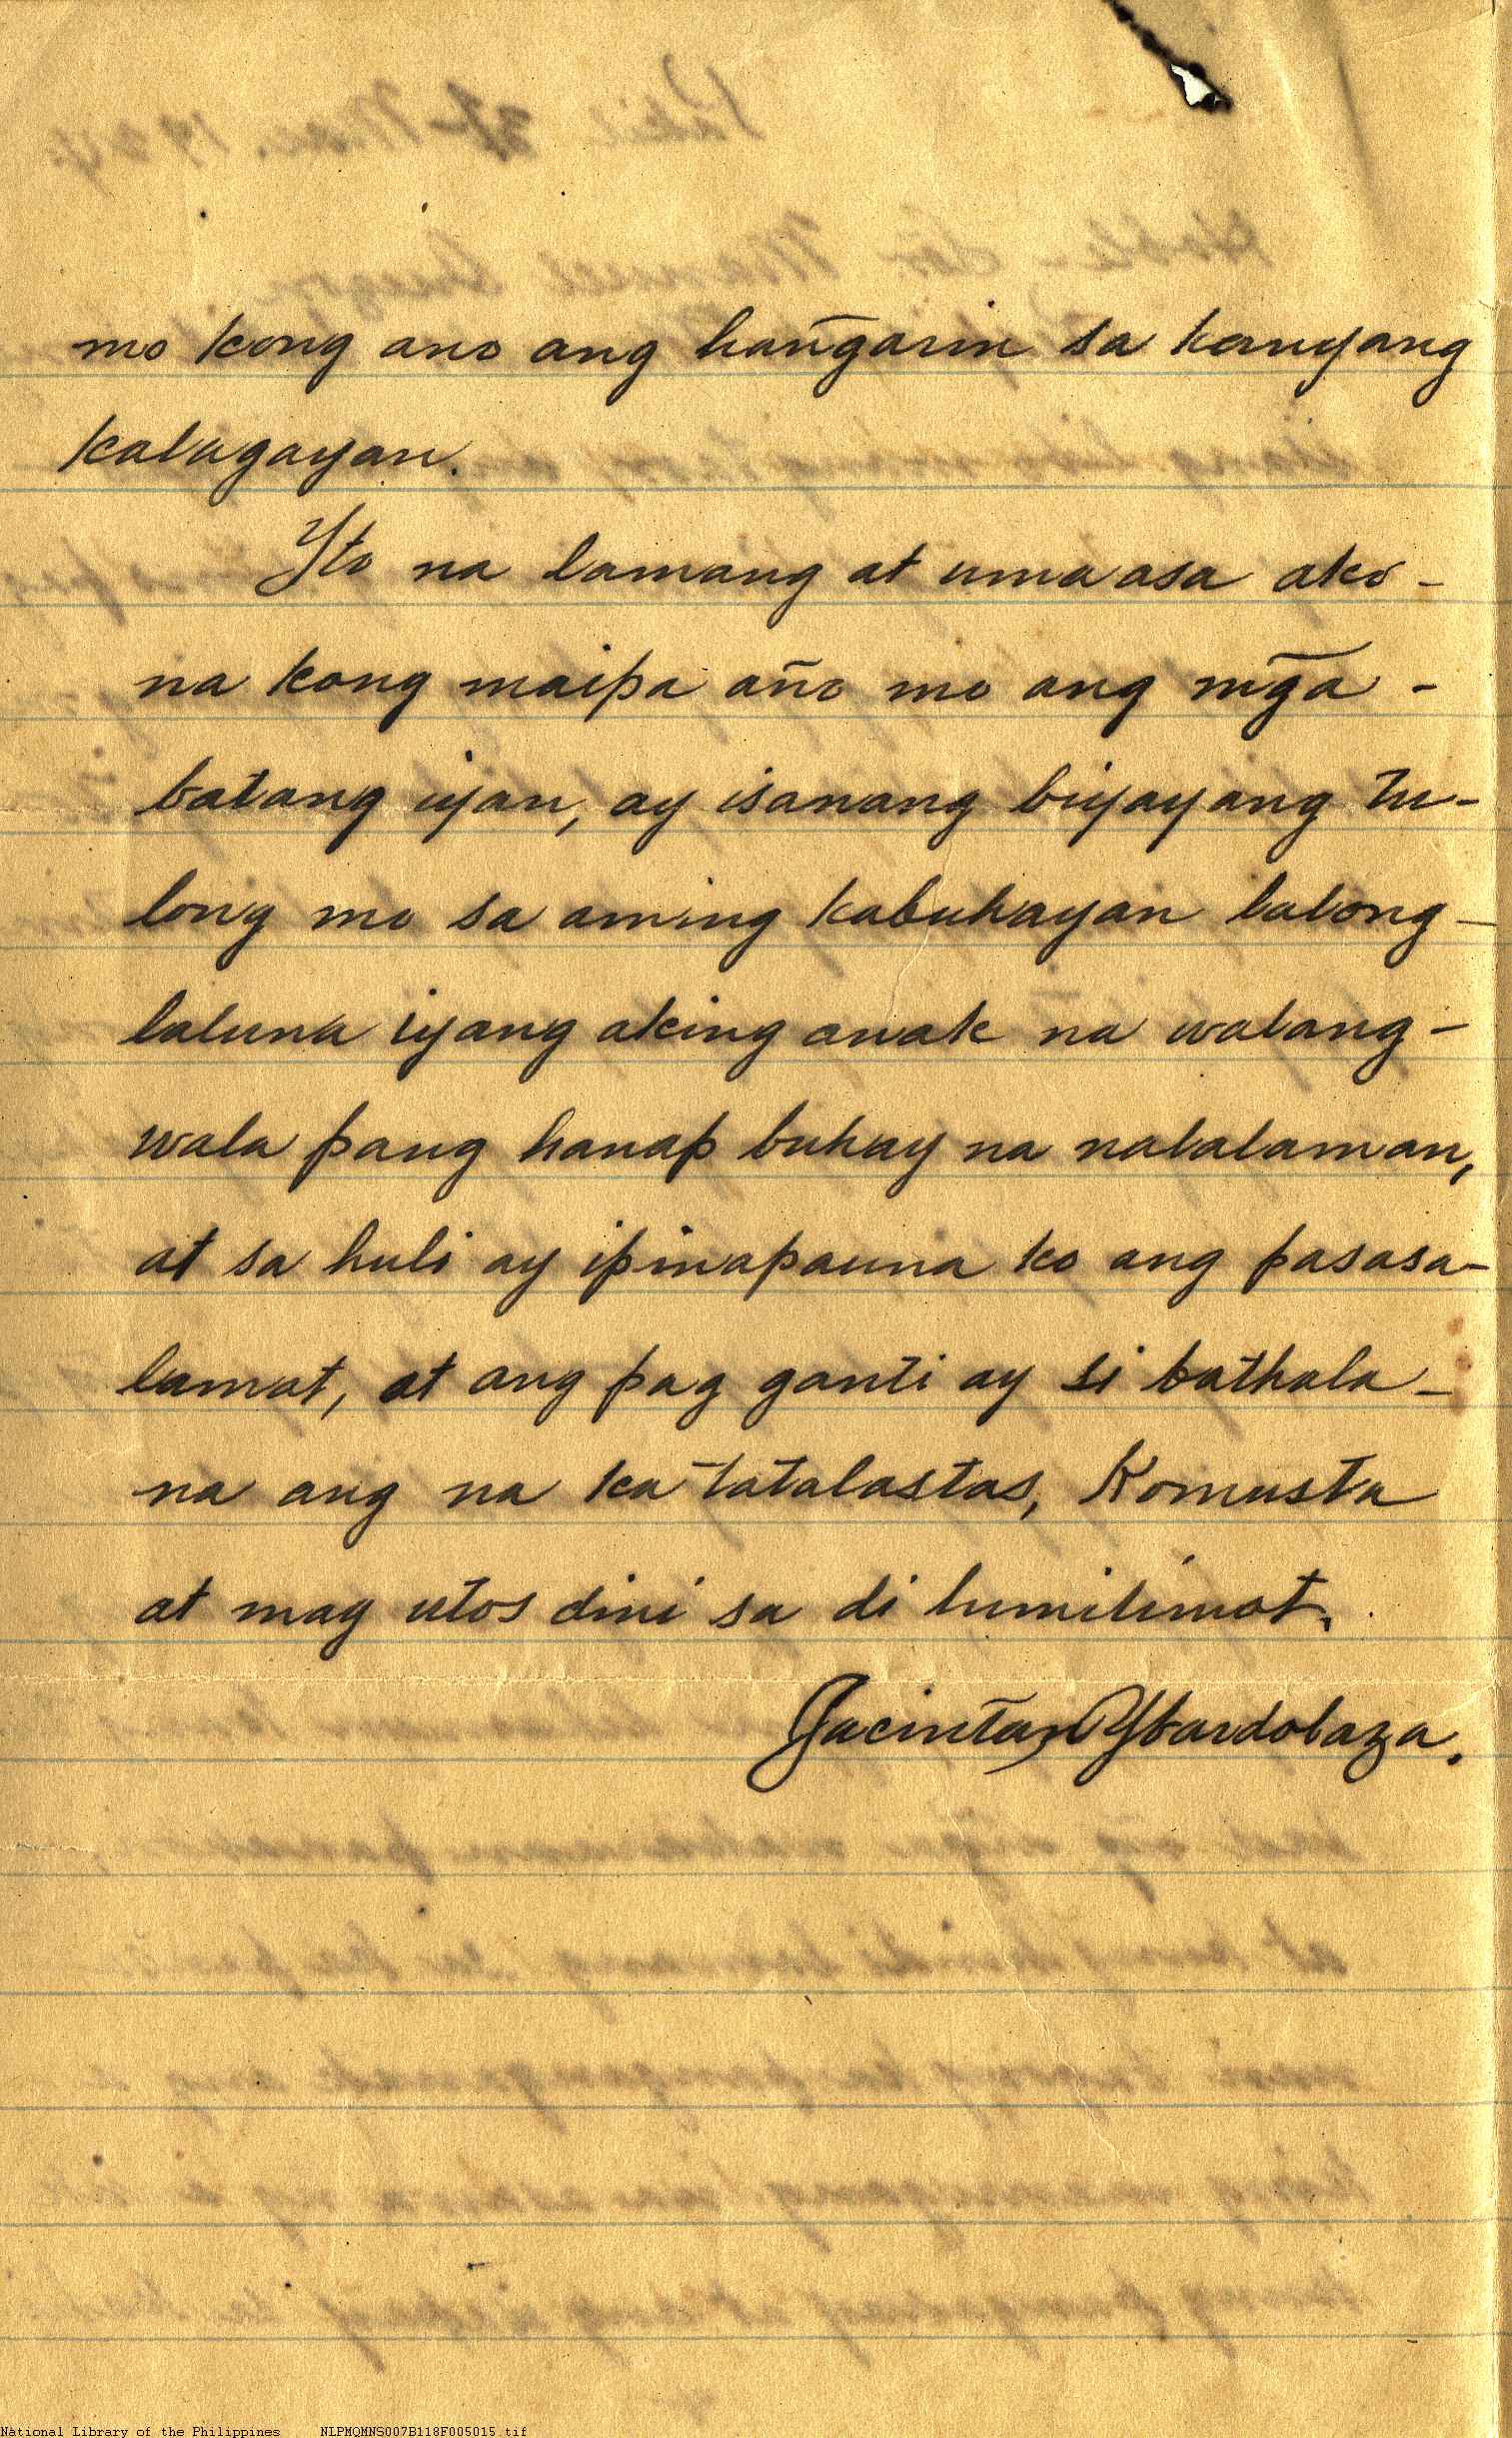 mo kong ano ang hañgarin sa kanyang
kalagayan.
Yto na lamang at umaasa ako-
na kong maipa año mo ang mg̃a -
batang iyan, ay isanang biyayang tu-
long mo sa aming kabuhayan lalong-
laluna iyang aking anak na walang-
wala pang hanap buhay na nalalaman,
at sa huli ay ipinapauna ko ang pasasa-
lamat, at ang pag ganti ay si bathala-
na ang na ka tatalastas, Komusta
at mag utos dini sa di lumilimot.
Jacintan Ybardolaza.
National Library of the Philippines NLPMQMNS007B118F005015.tif